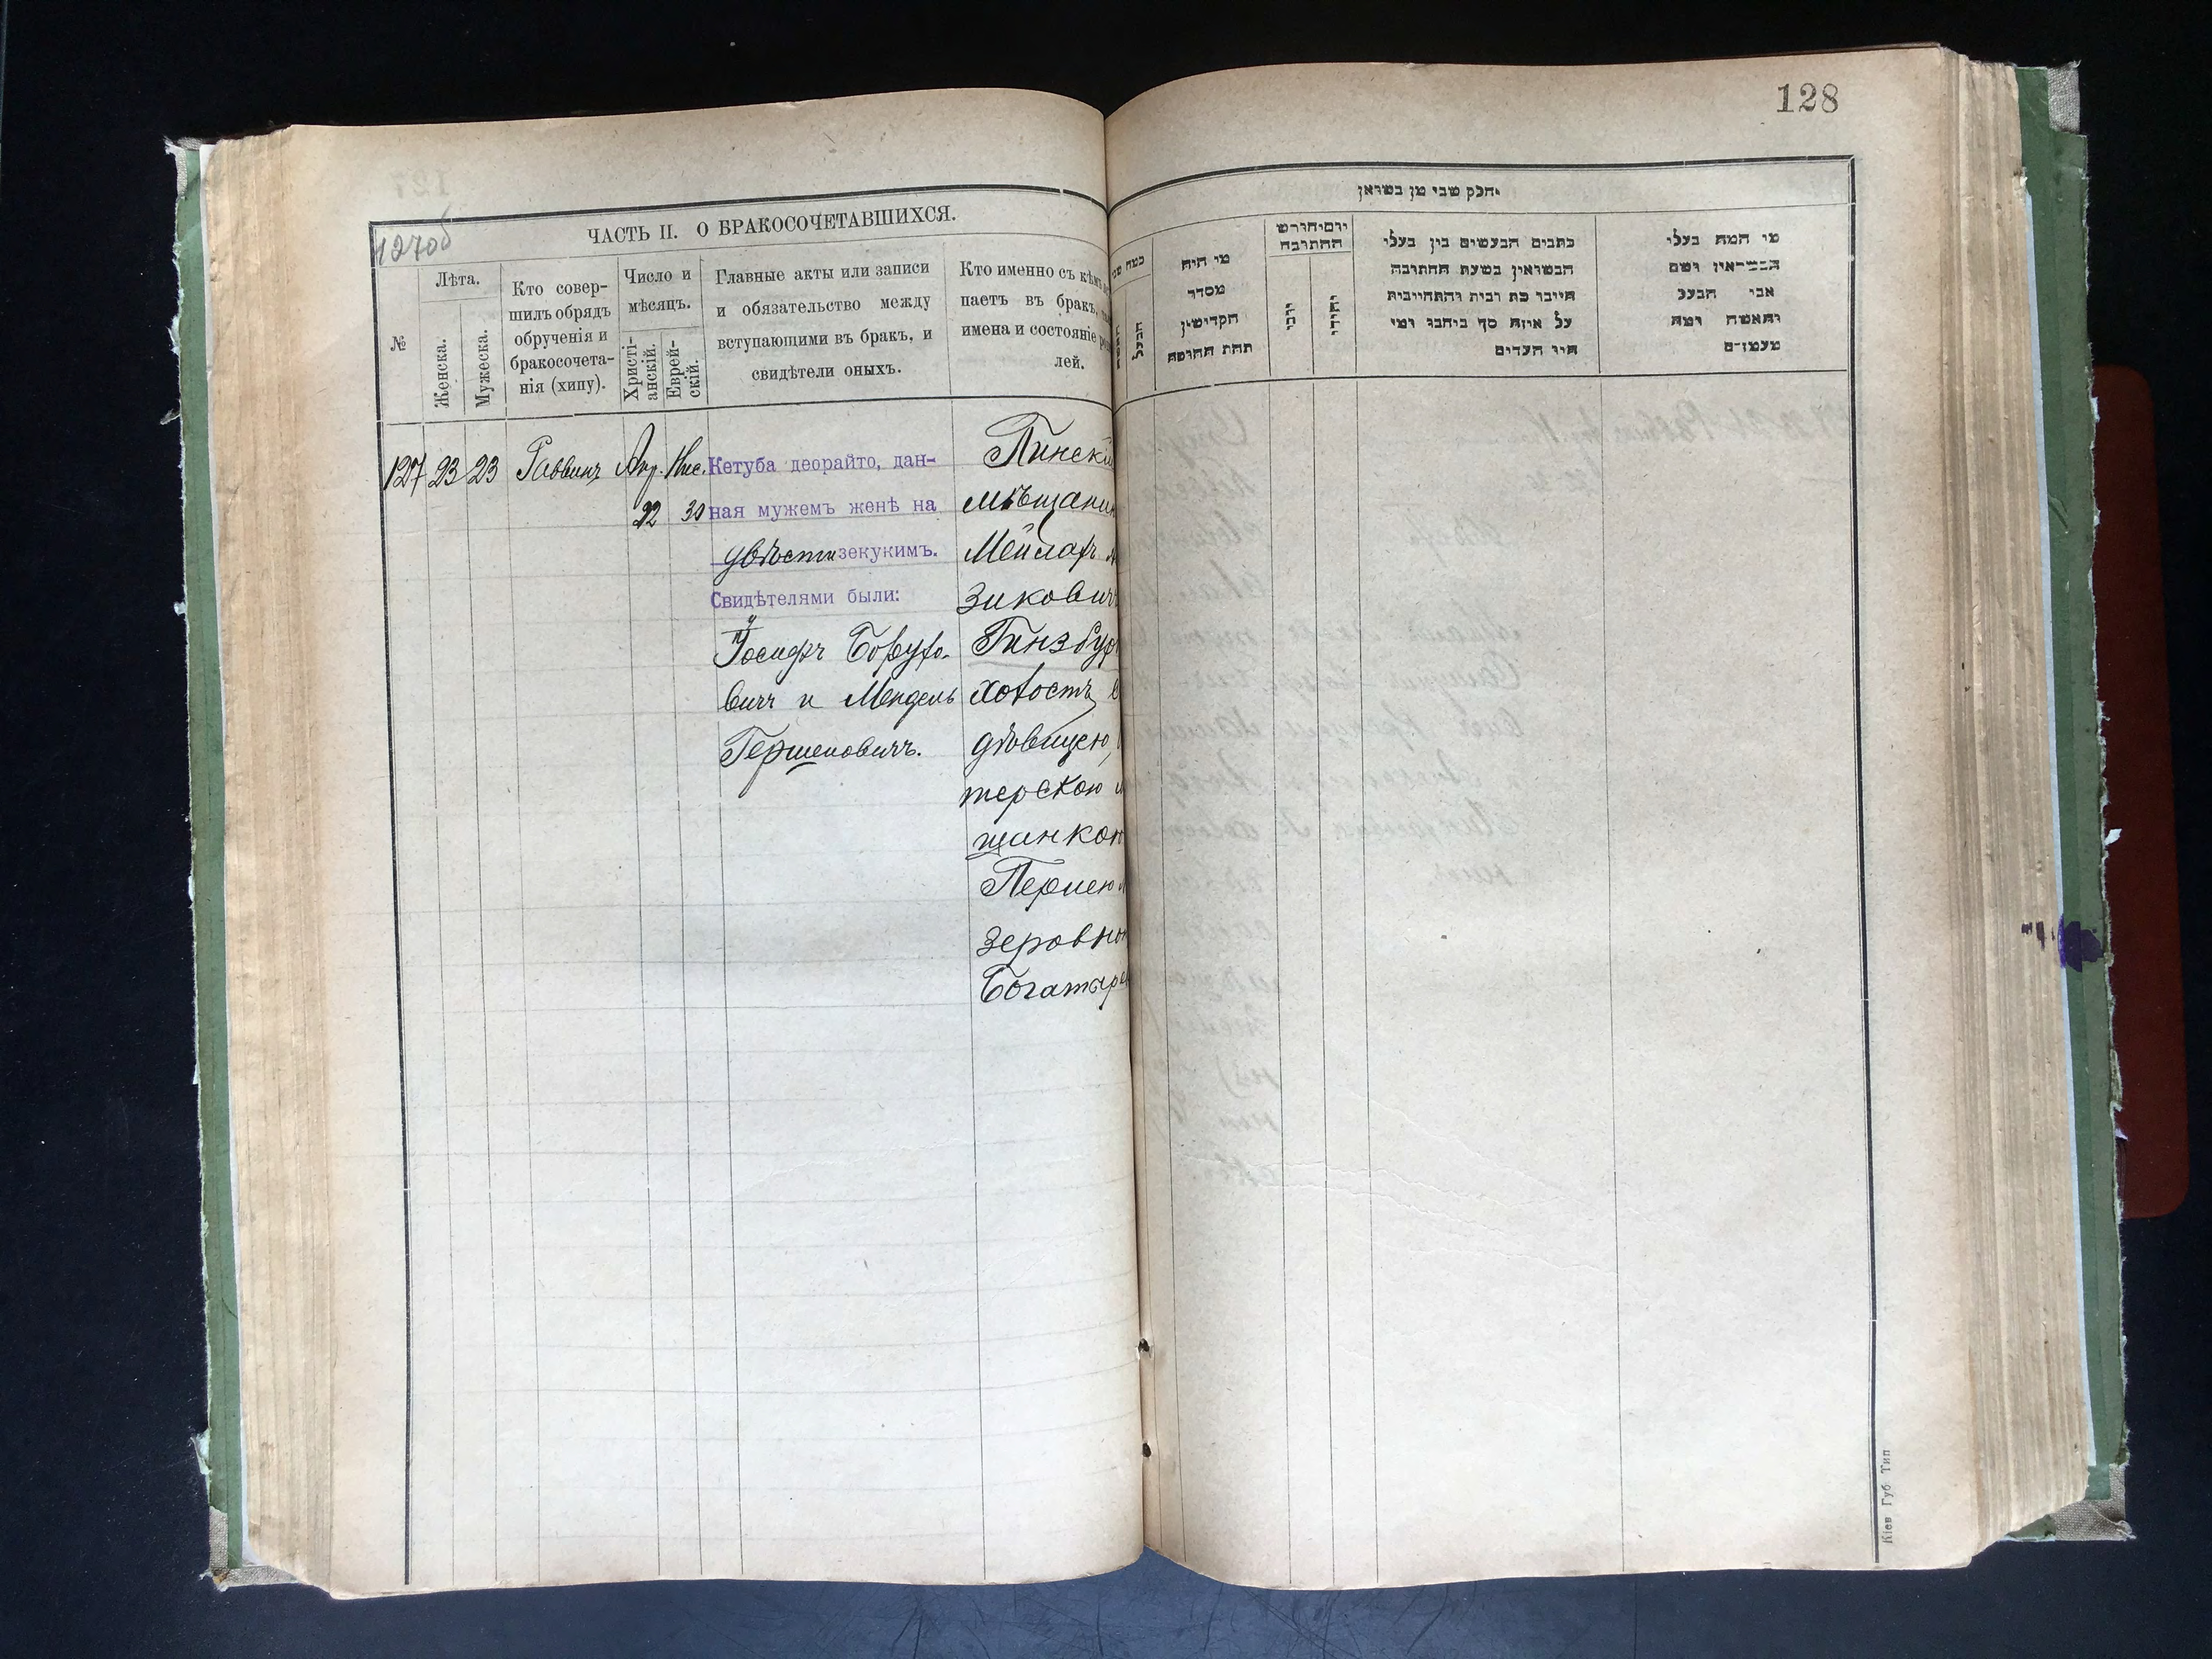 128
127об
ЧАСТЬ II. О БРАКОСОЧЕТАВШИХСЯ.
№
Лѣта.
Женска.
Мужеска.
Кто совер-
шилъ обрядъ
обрученія и
бракосочета-
нія (хипу).
Число и
мѣсяцъ.
Христі-
анскій.
Еврей-
скій.
Главные акты или записи
и обязательство между
вступающими въ бракъ, и
свидѣтели оныхъ.
Кто именно съ кѣмъ
паетъ въ бракъ,
имена и состояніе
лей.
127 23 23 Раввинъ Апр. Нис.
22 30
Кетуба деорайто, дан-
ная мужемъ женѣ на
двѣсти зекукимъ.
Свидѣтелями были:
Іосифъ Борухо-
вичъ и Мендель
Гершоновичъ.
Пинскій
мѣщанин
Мейлахъ
Зиковичъ
Гинзбур
холостъ
дѣвицею,
терскою
щанкою
Перлею
зеровно
Богатыре
חלק שני מן נשואין
כמה
הבעל
מי היה
מסדר
הקדישין
תחת החופה
יום וחודש
החתונה
יוני
יהודי
כתבים הנעשים בין בעלי
הנשואין בשעת החתונה
חייבו כת ובית והתחייבות
על איזה סך ביחבו ומי
היו העדים
מי המה בעלי
הנשואין ושם
אבי הבעל
והאשה ומה
מעמדם
Кіев Губ Тип